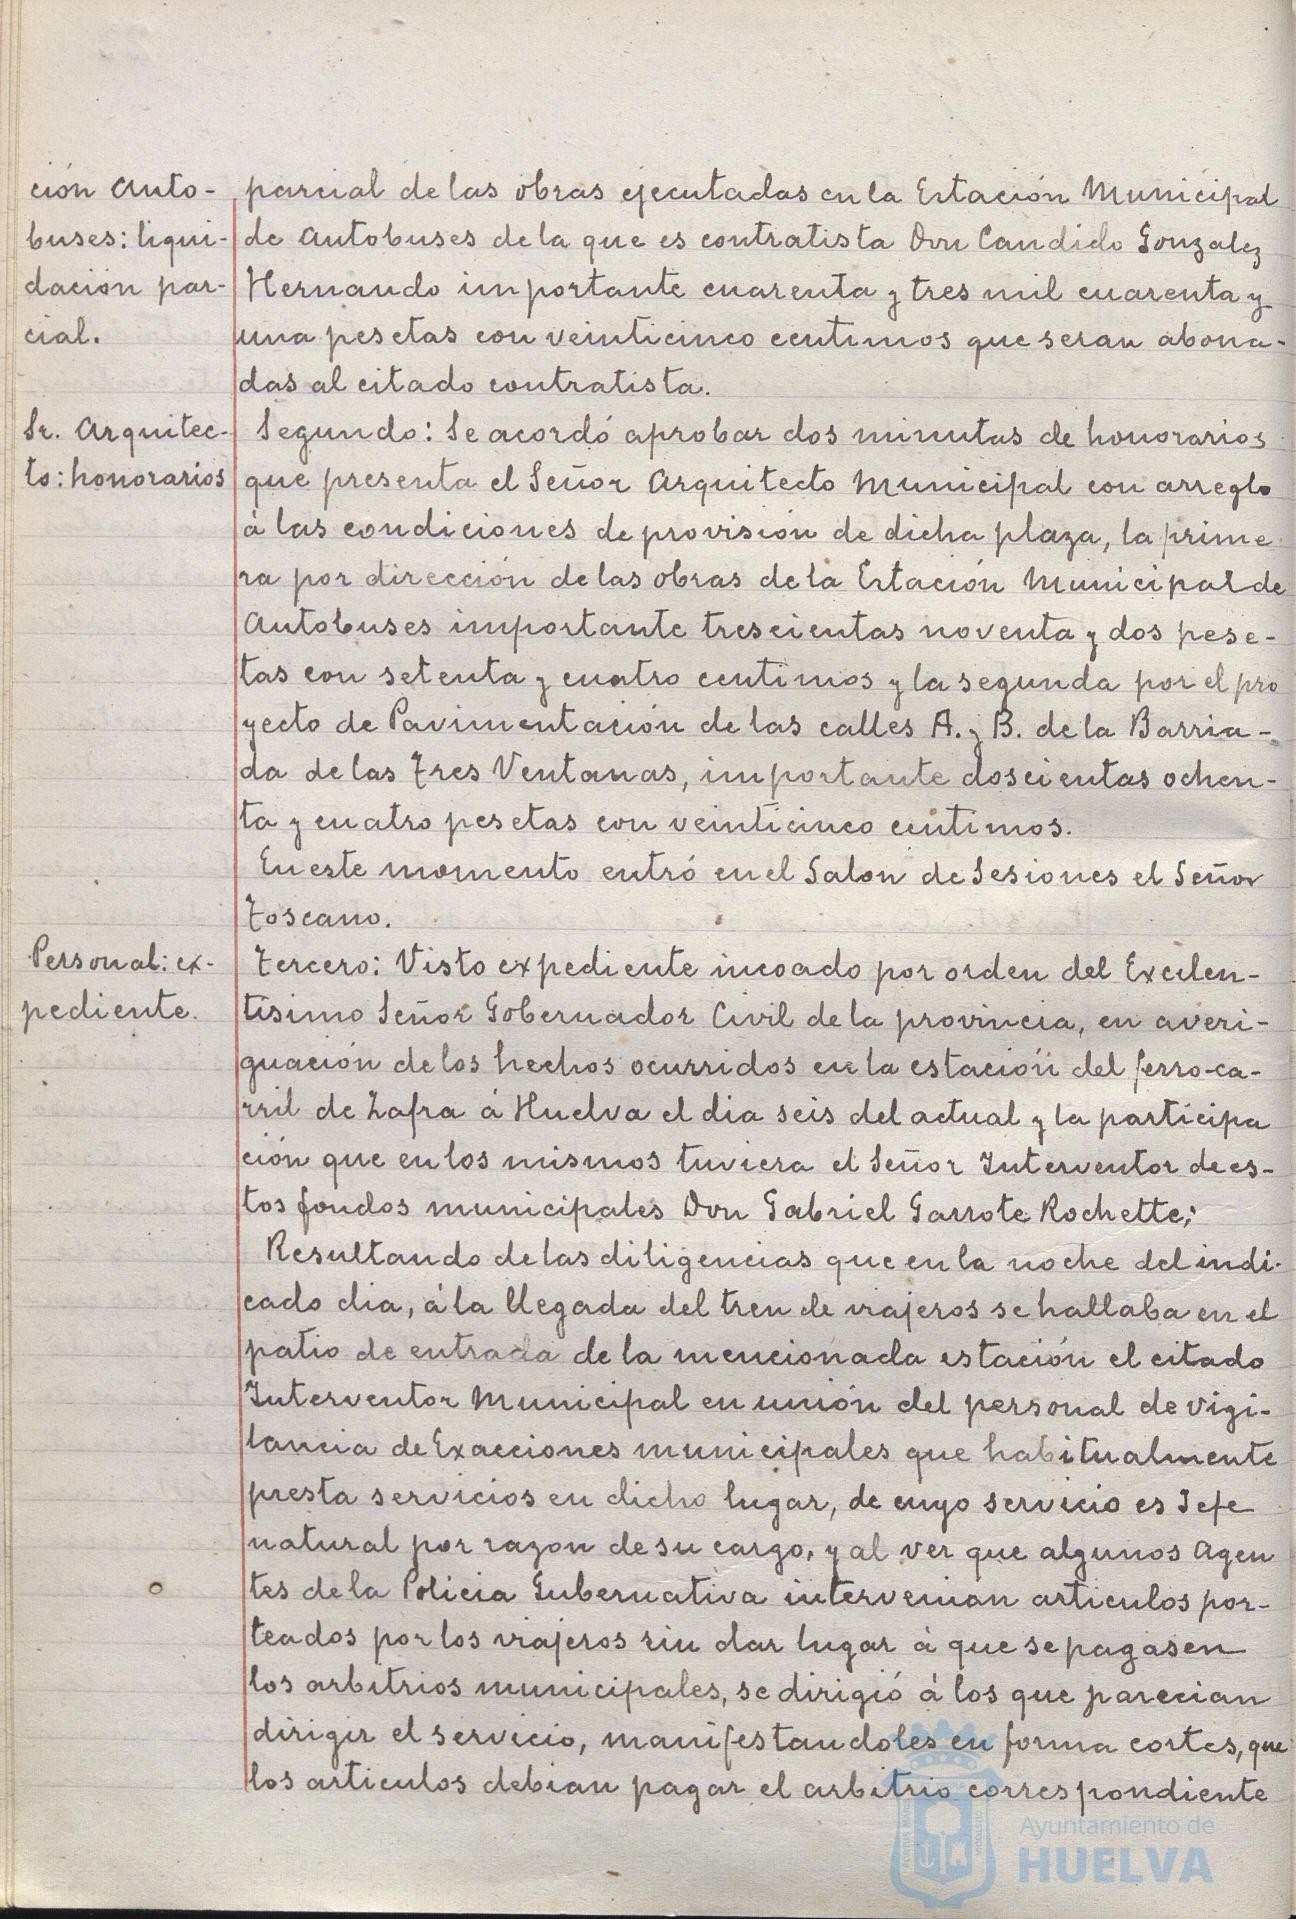 ción Auto-
buses: liqui-
dación par-
cial.
parcial de las obras ejecutadas en la Estación Municipal
de Autobuses de la que es contratista Don Candido Gonzalez
Hernando importante cuarenta y tres mil cuarenta y
una pesetas con veinticinco centimos que seran abona-
das al citado contratista.
Sr. Arquitec-
to: honorarios
Segundo: Se acordó aprobar dos minutas de honorarios
que presenta el Señor Arquitecto Municipal con arreglo
á las condiciones de provisión de dicha plaza, la prime
ra por dirección de las obras de la Estación Municipal de
Autobuses importante trescientas noventa y dos pese-
tas con setenta y cuatro centimos y la segunda por el pro
yecto de Pavimentación de las calles A. y B. de la Barria-
da de las Tres Ventanas, importante doscientas ochen-
ta y cuatro pesetas con veinticinco centimos.
En este momento entró en el Salon de Sesiones el Señor
Toscano.
Personal: ex-
pediente.
Tercero: Visto expediente incoado por orden del Excelen-
tisimo Señor Gobernador Civil de la provincia, en averi-
guación de los hechos ocurridos en la estación del ferro-ca-
rril de Zafra á Huelva el dia seis del actual y la participa
ción que en los mismos tuviera el Señor Interventor de es-
tos fondos municipales Don Gabriel Garrote Rochette;
Resultando de las diligencias que en la noche del indi-
cado dia, á la llegada del tren de viajeros se hallaba en el
patio de entrada de la mencionada estación el citado
Interventor Municipal en unión del personal de vigi-
lancia de Exacciones municipales que habitualmente
presta servicios en dicho lugar, de cuyo servicio es Jefe
natural por razon de su cargo, y al ver que algunos Agen
tes de la Policia Gubernativa intervenian articulos por-
teados por los viajeros sin dar lugar á que se pagasen
los arbitrios municipales, se dirigió á los que parecian
dirigir el servicio, manifestandoles en forma cortes, que
los articulos debian pagar el arbitrio correspondiente
Ayuntamiento de
HUELVA